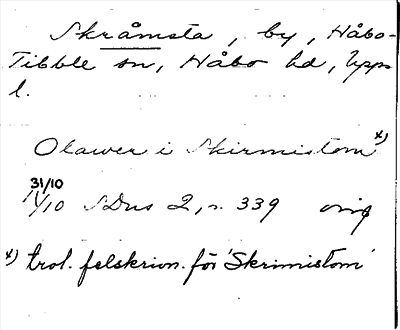 Skråmsta, by, Håbo-
Tibble sn, Håbo hd, Upps
l.
Olawer i Skirmistom x)
31/10
SDns 2, s. 339 orig
x) trol. felskrivn. för 'Skrimistom'